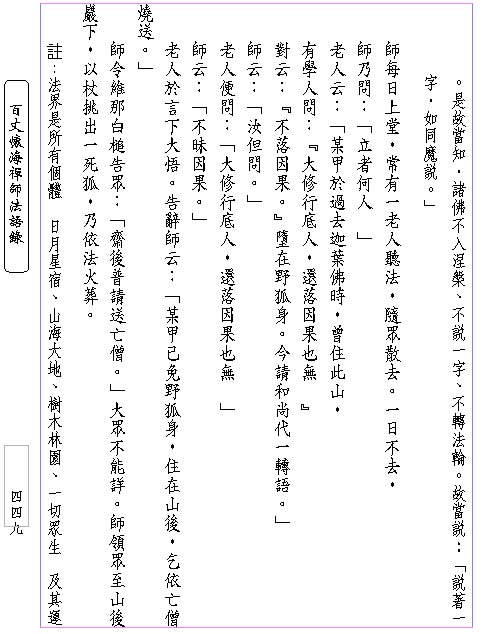 。是故當知，諸佛不入涅槃、不說一字、不轉法輪。故當說：「說著一
字，如同魔說。」
師每日上堂，常有一老人聽法，隨眾散去。一日不去，
師乃問：「立者何人　」
老人云：「某甲於過去迦葉佛時，曾住此山，
有學人問：『大修行底人，還落因果也無　』
對云：『不落因果。』墮在野狐身。今請和尚代一轉語。」
師云：「汝但問。」
老人便問：「大修行底人，還落因果也無　」
師云：「不昧因果。」
老人於言下大悟。告辭師云：「某甲已免野狐身，住在山後，乞依亡僧
燒送。」
師令維那白槌告眾：「齋後普請送亡僧。」大眾不能詳。師領眾至山後
巖下，以杖挑出一死狐，乃依法火葬。
註：法界是所有個體　日月星宿、山海大地、樹木林園、一切眾生　及其遷
百丈懷海禪師法語錄
四四九